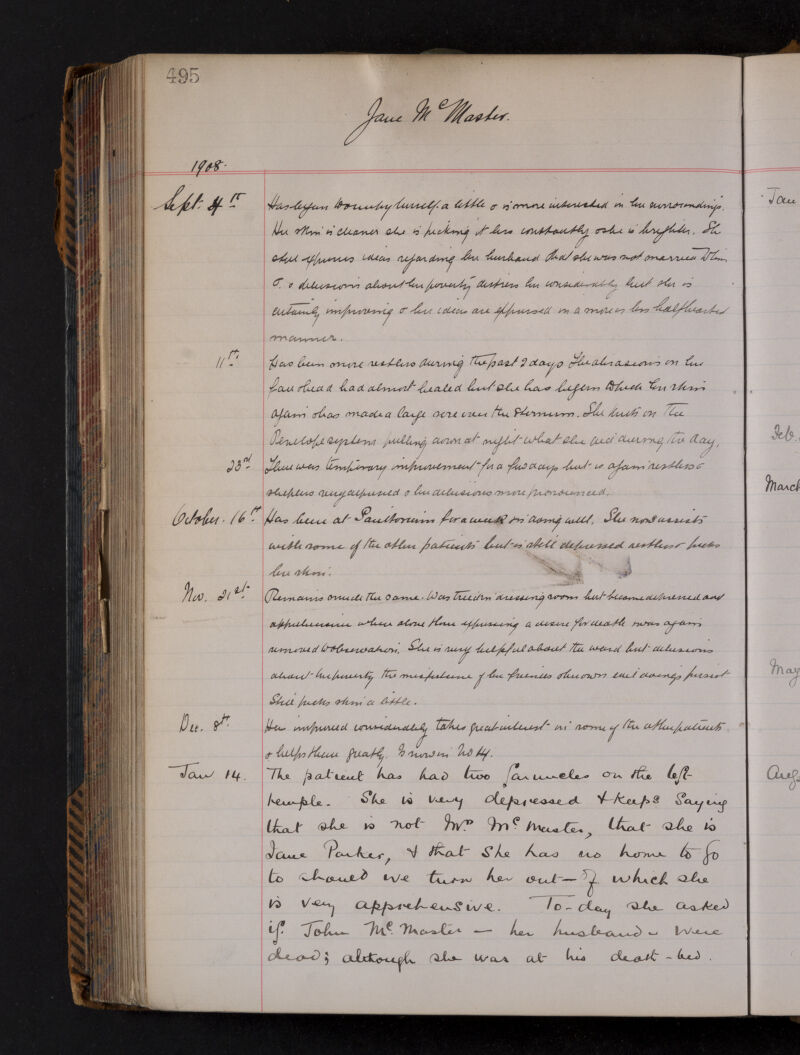 495
Jane McMaster.
1908.
Sept. 4th Has begun to occupy herself a little & is more interested in her surroundings.
Her skin is cleaner she is picking it less constantly & she is brighter. She
still expresses ideas regarding her husband that she was not married to him
& delusions about her poverty distress her considerably but she is
certainly improving & her ideas are expressed in a more or less halfhearted
manner.
11th Has been more restless during the past 2 days. The abrasions on her
forehead had almost healed but she has begun to pick her skin
again & has made a large sore over the sternum. She knits on the
Penelope system pulling down at night what she did during the day.
23rd There was temporary improvement for a few days but is again restless &
sleepless very depressed & her delusions more pronounced.
October. 16th Has been at for a week & is doing well. She now assists
with some of the other patients but is still depressed restless & picks
her skin.
Nov. 21st Remains much the same. Was tried in dressing room but became depressed and
apprehensive when alone there expressing a desire for death & was again
removed to observation. She is very helpful about the ward but delusions
about her poverty the of her friends & her own evil doings persist
Still picks skin a little.
Dec. 8th Has improved considerably takes great interest in some of the other patients
& helps them greatly. Is now in No 4.
Jan 14. The patient has had two furuncles on the left
temple. She is very depressed & keeps saying
that she is not Mrs McMaster, that she is
Jane Parker, & that she has no home to go
to should we turn her out — of which she
is very apprehensive. To-day she asked
if John McMaster — her husband — were
dead; although she was at his death-bed.
Jan
Feb.
March
May
Aug